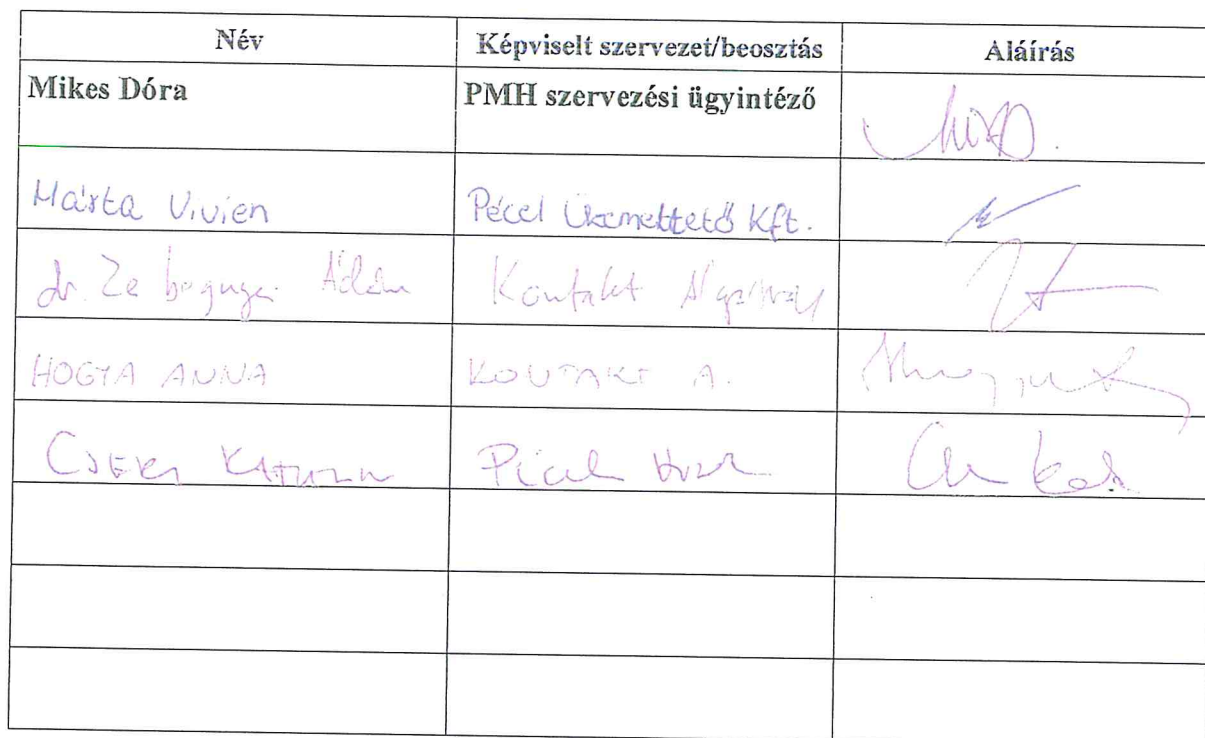 Név Képviselt szervezet/beosztás Aláírás
Mikes Dóra PMH szervezési ügyintéző
Márta Vivien Pécel Üzemeltető Kft.
dr. Zebegnyei Ádám Kontakt
HOGYA ANNA KONTAKT A.
CSEKI KATALIN